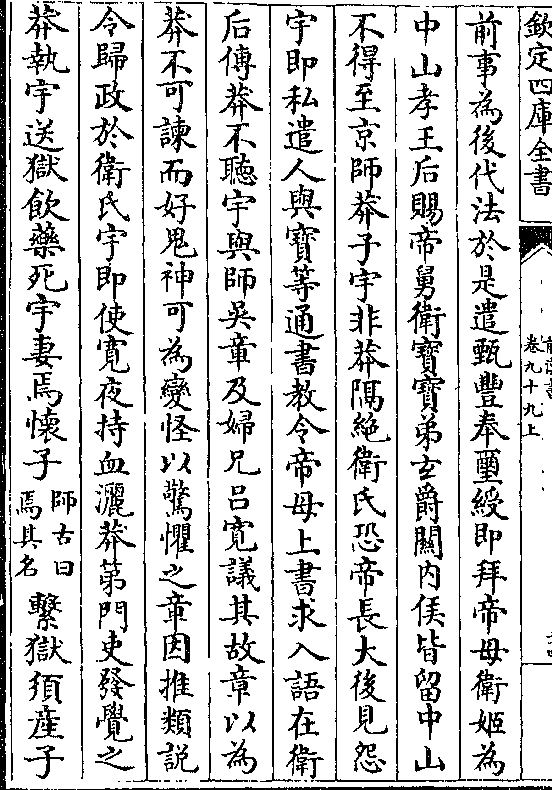 欽定四庫全書
卷九十九上
前事為後代法於是遣甄豐奉璽綬即拜帝母衛姬為
中山孝王后賜帝舅衛寶寶弟玄爵關內侯皆留中山
不得至京師莽子宇非莽隔絶衛氏恐帝長大後見怨
宇即私遣人與寶等通書教令帝母上書求入語在衛
后傳莽不聽宇與師吳章及婦兄呂寛議其故章以為
莽不可諫而好鬼神可為變怪以驚懼之章因推類説
令歸政於衛氏宇即使寛夜持血灑莽第門吏發覺之
莽執宇送獄飲藥死宇妻焉懷子師古曰焉其名繫獄須産子